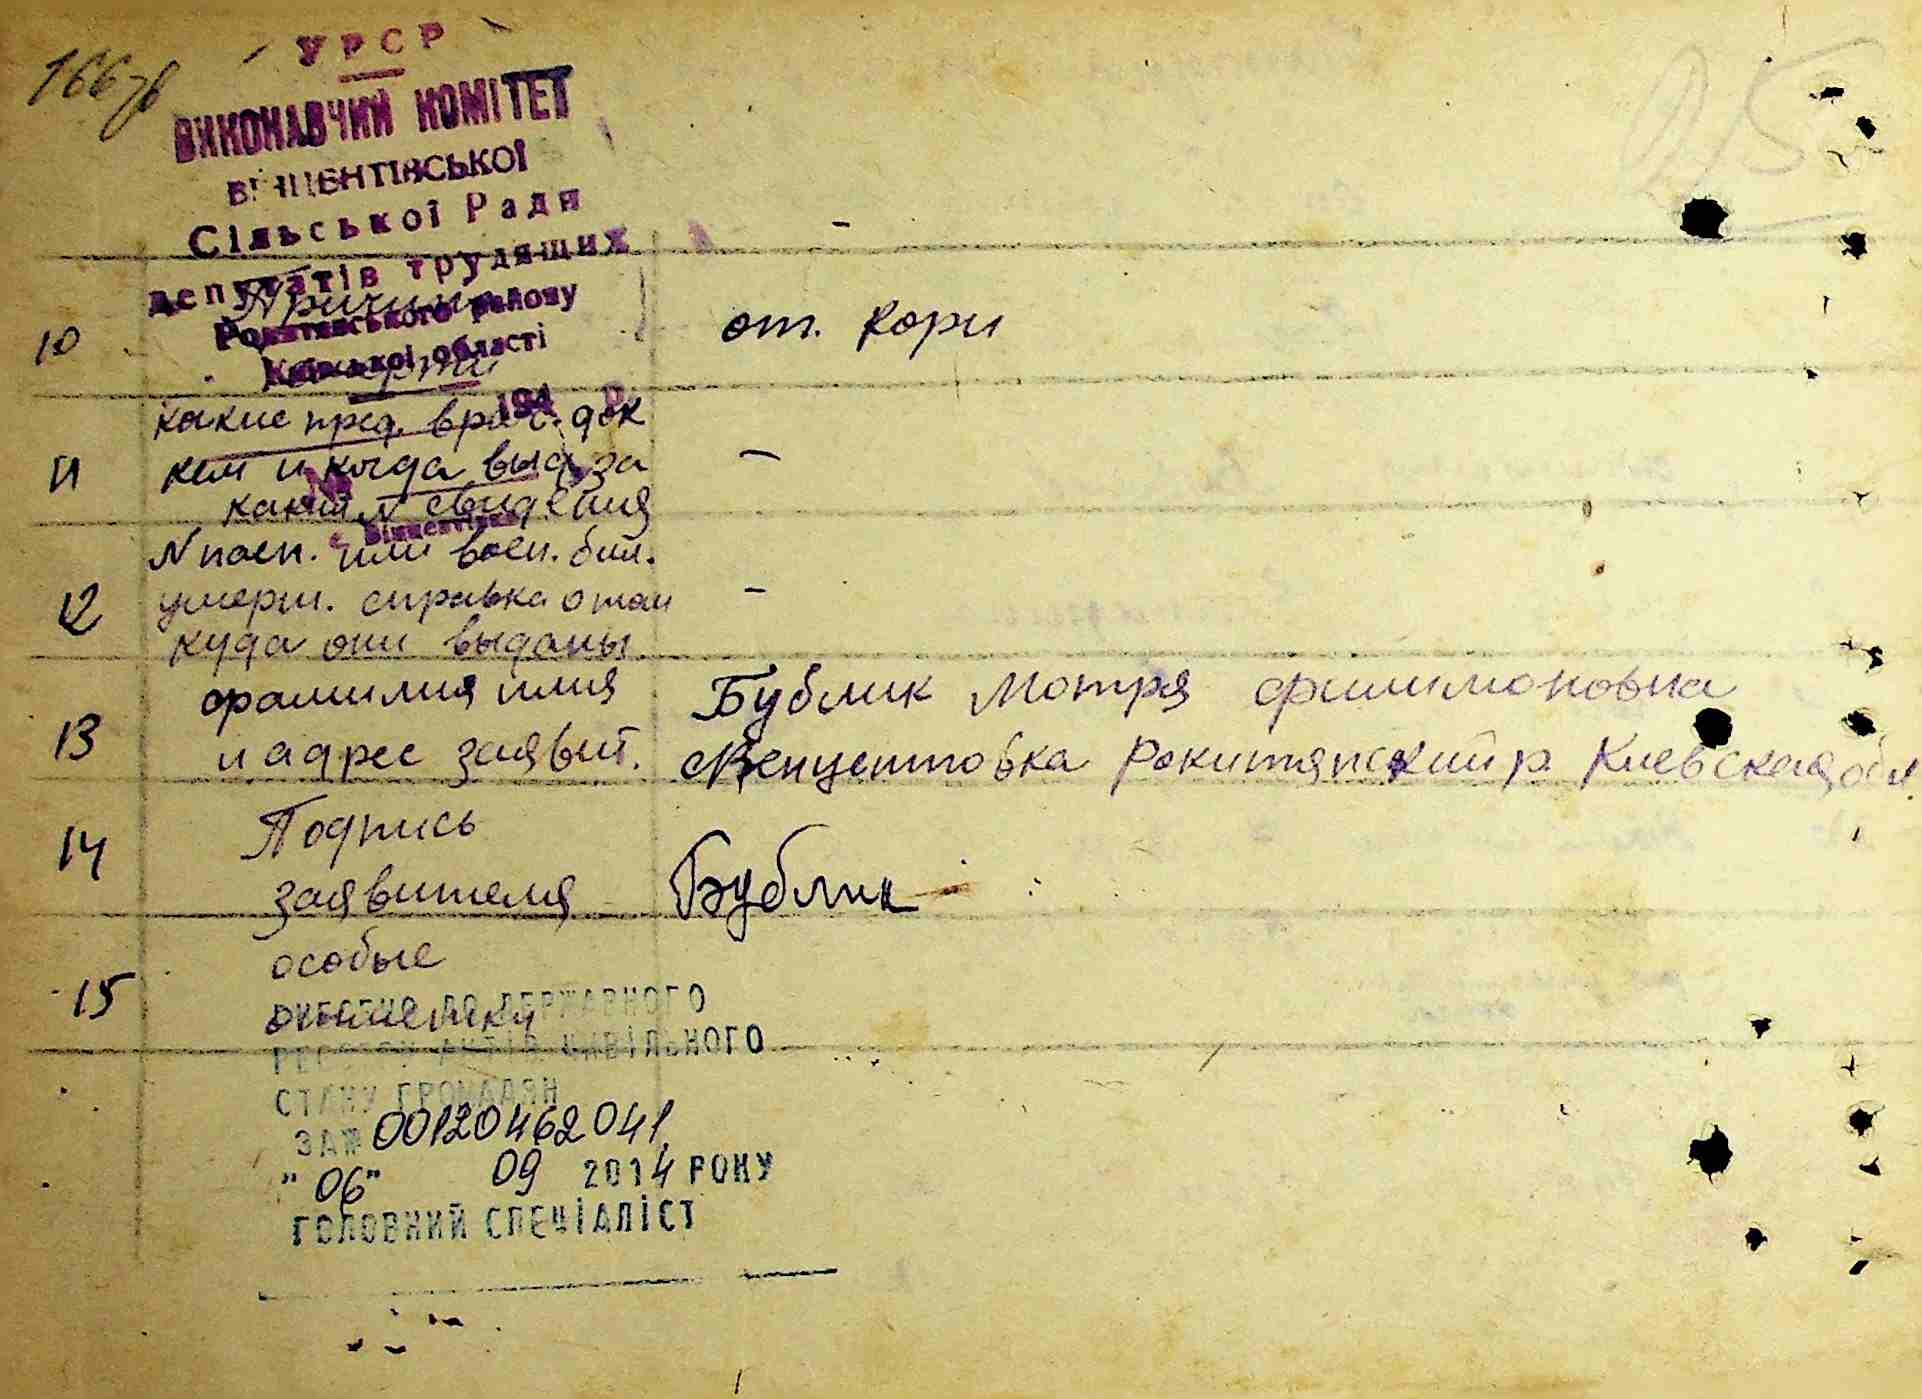 166зв
25
УРСР
ВИКОНАВЧИЙ КОМІТЕТ
ВІНЦЕНТІВСЬКОЇ
Сільської Ради
депутатів трудящих
Рокитянського району
Київської області
194 р.
№
с. Вінцентівка
-
10 Причина смерти от. кори
какие пред. врач. док
11 кем и когда выд за -
каким N свидения
N пасп. или воен. бил.
12 умерш. справка о том -
куда они выданы
фамилия имя Бублик Мотря филимоновна
13 и адрес заявит. с Венцентовка Рокитянский р Киевская обл.
14 Подпись
заявителя Бублик
особые
15
ДО ДЕРЖАВНОГО
РЕЄСТРУ АКТІВ ЦИВІЛЬНОГО
СТАНУ ГРОМАДЯН
ЗА № 00120462041
"06" 09 2014 РОКУ
ГОЛОВНИЙ СПЕЦІАЛІСТ